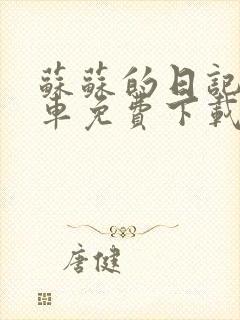 蘇蘇的日記
車免費下載
唐健